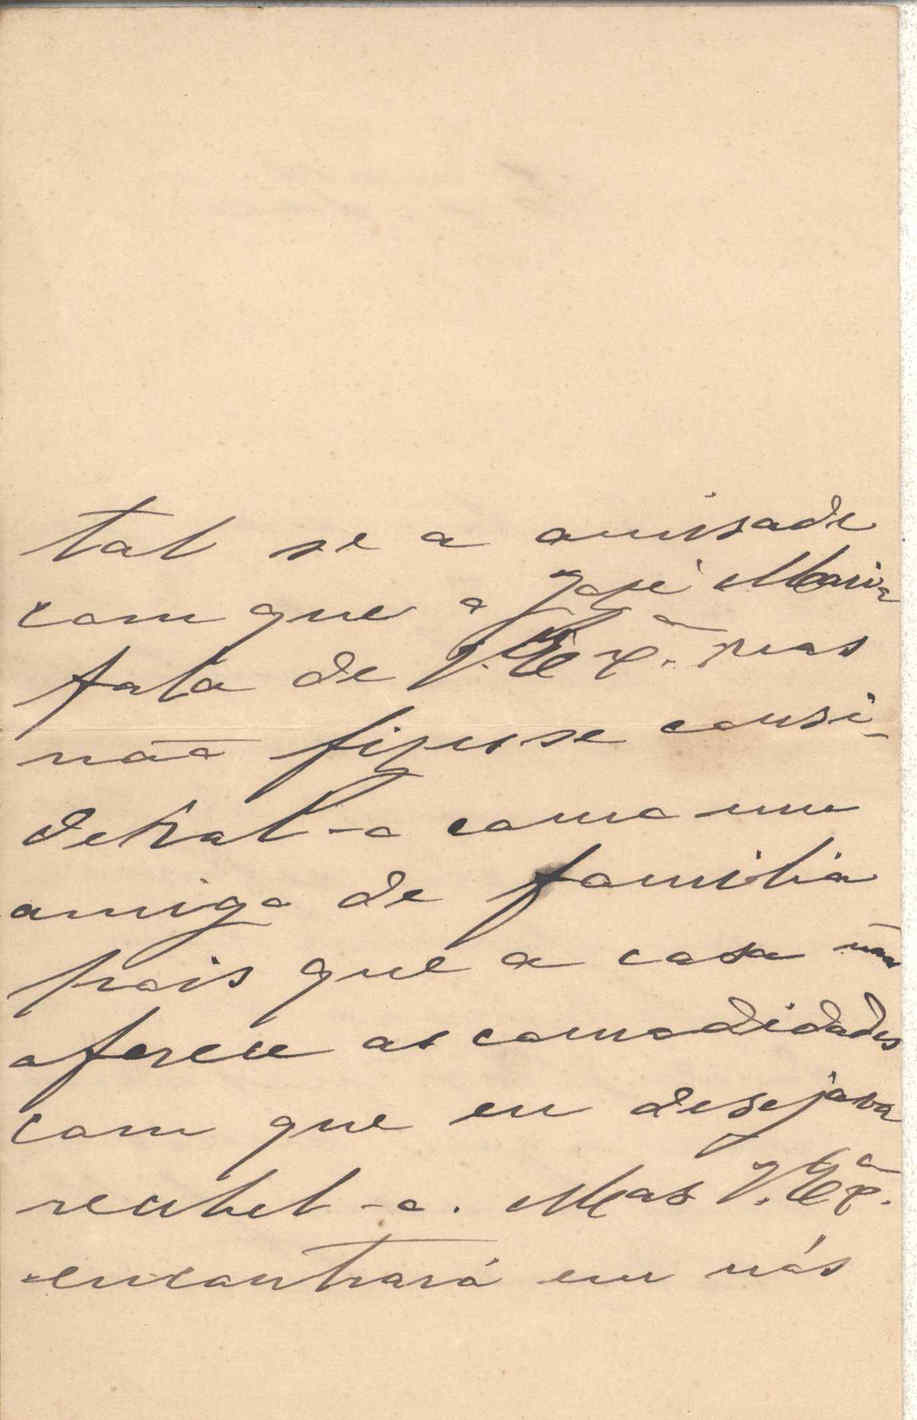 tal se a amisade
com que o José Maria
fala de V. Exª. nos
não fizesse consi-
deral-o como um
amigo de familia
pois que a casa não
oferece as comodidades
com que eu desejava
recebel-o. Mas V. Exª.
encontrará em nós